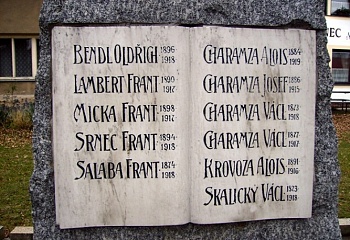 BENDL OLDŘICH 1896 1918
LAMBERT FRANT 1890 1917
MICKA FRANT 1898 1917
SRNEC FRANT 1894 1918
SALABA FRANT 1874 1918
CHARAMZA ALOIS 1884 1919
CHARAMZA JOSEF 1896 1915
CHARAMZA VÁCL 1873 1918
CHARAMZA VÁCL 1877 1917
KROVOZA ALOIS 1891 1916
SKALICKÝ VÁCL 1873 1918